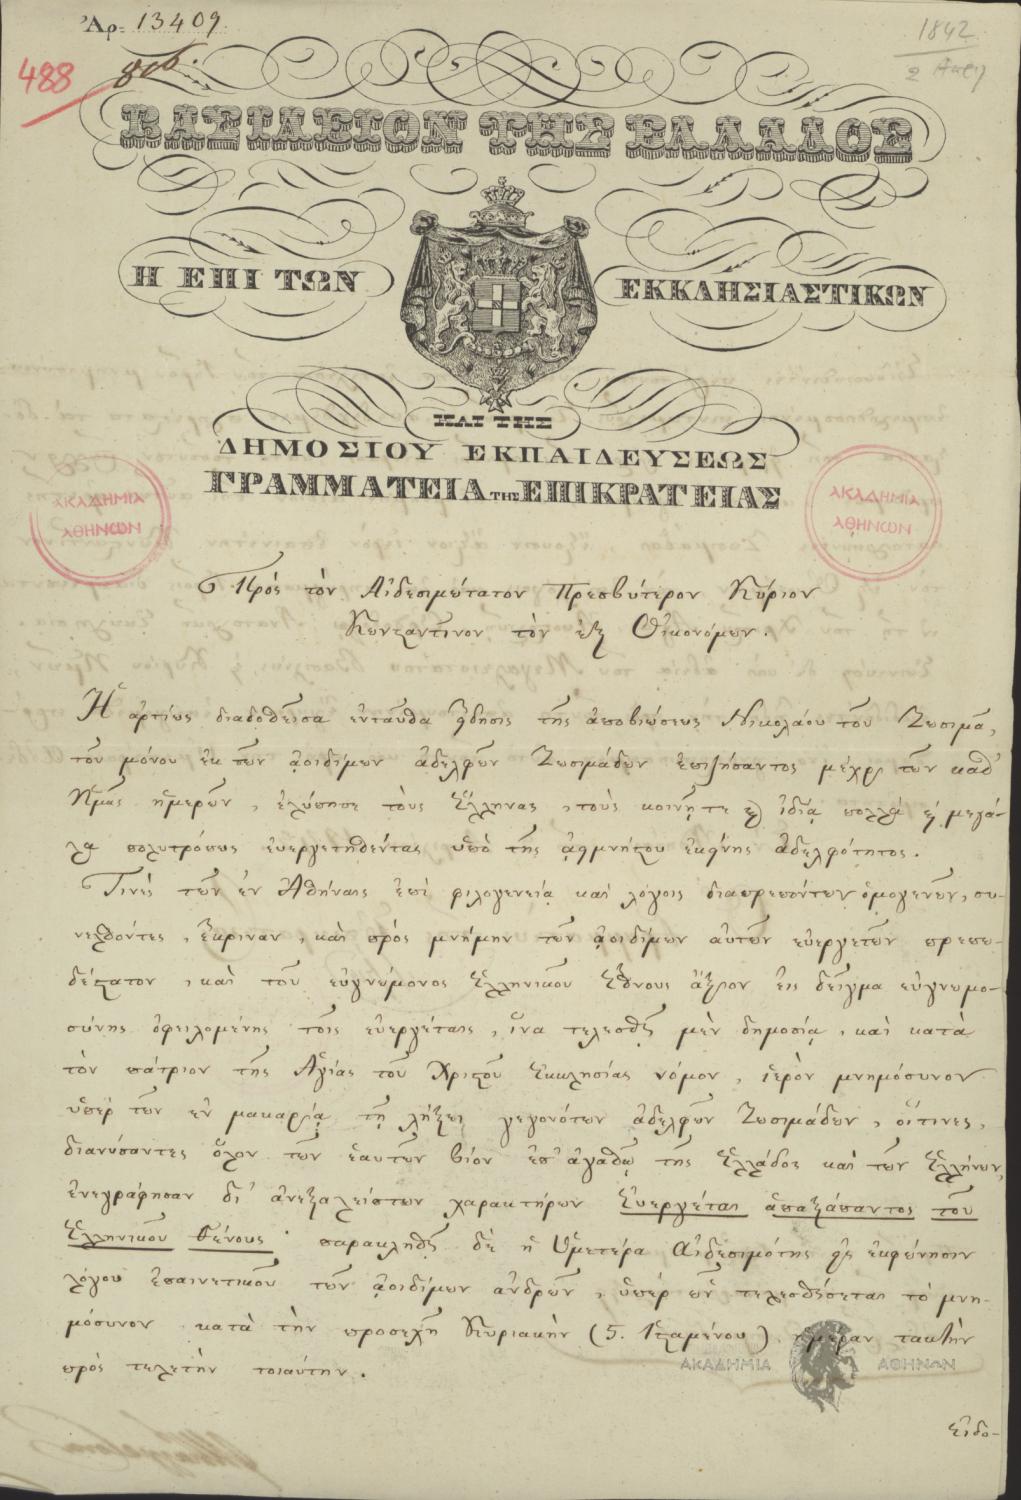 Ἀρ. 13409
1842
2
488
ΒΑΣΙΛΕΙΟΝ ΤΗΣ ΕΛΛΑΔΟΣ
Η ΕΠΙ ΤΩΝ ΕΚΚΛΗΣΙΑΣΤΙΚΩΝ
ΚΑΙ ΤΗΣ
ΔΗΜΟΣΙΟΥ ΕΚΠΑΙΔΕΥΣΕΩΣ
ΓΡΑΜΜΑΤΕΙΑ ΤΗΣ ΕΠΙΚΡΑΤΕΙΑΣ
ΑΚΑΔΗΜΙΑ
ΑΘΗΝΩΝ
ΑΚΑΔΗΜΙΑ
ΑΘΗΝΩΝ
Πρὸς τὸν Αἰδεσιμώτατον Πρεσβύτερον Κύριον
Κωνσταντῖνον τὸν ἐξ Οἰκονόμων.
Ἡ ἀρτίως διαδοθεῖσα ἐνταῦθα εἴδησις τῆς ἀποβιώσεως Νικολάου τοῦ Ζωσιμᾶ,
τοῦ μόνου ἐκ τῶν ἀοιδίμων ἀδελφῶν Ζωσιμάδων ἐπιζήσαντος μέχρι τῶν καθ'
ἡμᾶς ἡμερῶν, ἐλύπησε τοὺς Ἕλληνας, τοὺς κοινῇ τε καὶ ἰδίᾳ πολλὰ καὶ μεγά-
λα πολυτρόπως εὐεργετηθέντας ὑπὸ τῆς ἀειμνήστου ἐκείνης ἀδελφότητος.
Τινὲς τῶν ἐν Ἀθήναις ἐπὶ φιλογενείᾳ καὶ λόγοις διαπρεπόντων ὁμογενῶν, συ-
νελθόντες, ἔκριναν, καὶ πρὸς μνήμην τῶν ἀοιδίμων αὐτῶν εὐεργετῶν πρεπω-
δέστατον, καὶ τοῦ εὐγνώμονος Ἑλληνικοῦ Ἔθνους ἄξιον εἰς δεῖγμα εὐγνωμο-
σύνης ὀφειλομένης τοῖς εὐεργέταις, ἵνα τελεσθῇ μὲν δημοσίᾳ, καὶ κατὰ
τὸν πάτριον τῆς Ἁγίας τοῦ Χριστοῦ Ἐκκλησίας νόμον, ἱερὸν μνημόσυνον
ὑπὲρ τῶν ἐν μακαρίᾳ τῇ λήξει γεγονότων ἀδελφῶν Ζωσιμάδων, οἵτινες,
διανύσαντες ὅλον τῶν ἑαυτῶν βίον ἐπ' ἀγαθῷ τῆς Ἑλλάδος καὶ τῶν Ἑλλήνων,
ἐνεγράφησαν δι' ἀνεξαλείπτων χαρακτήρων Εὐεργέται ἁπαξάπαντος τοῦ
Ἑλληνικοῦ Γένους· παρακληθῇ δὲ ἡ Ὑμετέρα Αἰδεσιμότης εἰς ἐκφώνησιν
λόγου ἐπαινετικοῦ τῶν ἀοιδίμων ἀνδρῶν, ὑπὲρ ὧν τελεσθήσεται τὸ μνη-
μόσυνον κατὰ τὴν προσεχῆ Κυριακὴν (5. Ἱσταμένου) ἡμέραν τακτὴν
πρὸς τελετὴν τοιαύτην.
ΑΚΑΔΗΜΙΑ ΑΘΗΝΩΝ
Εἰδο-